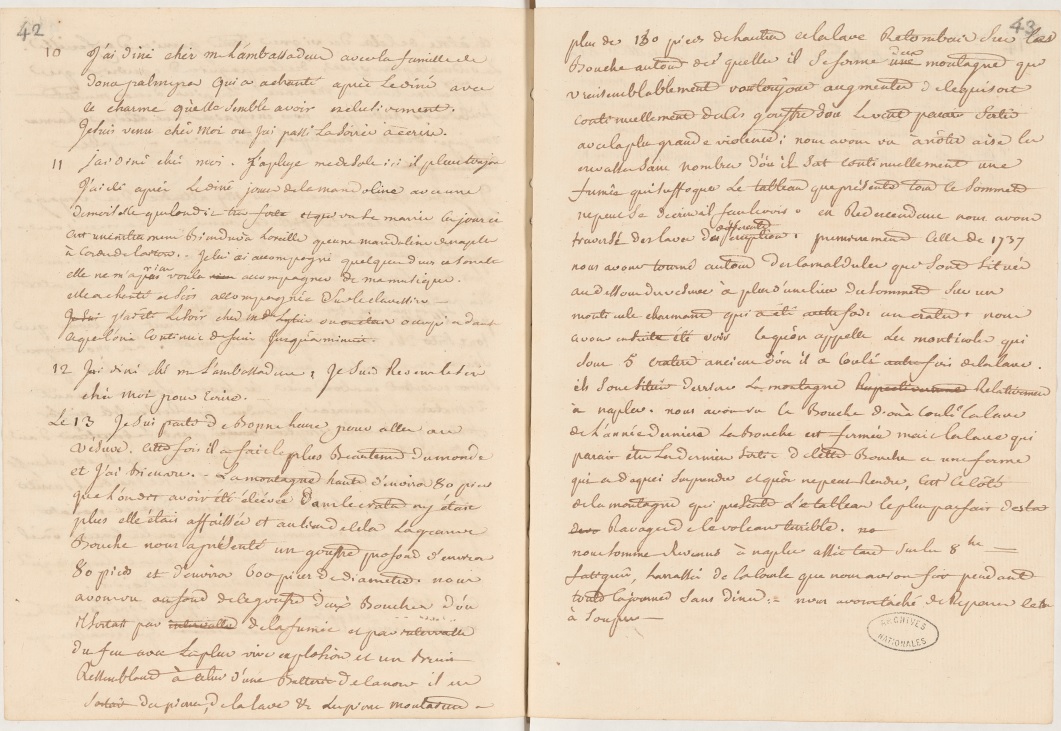 42
10 J'ai diné cher mr L'ambassadeur avec la famille de
dona palmyra Qui a chanté après Le diné avec
ce charme qu'elle semble avoir exclusivement.
Je suis venu chés moi ou j'ai passé La soirée à ecrire.
11 j'ai diné chés moi. J'apluye me desole ici il pleut toujours
J'ai été après Le diné jouer de la mandoline avec une
demoiselle qu'on dit tres forte et qui va se marier les jours ci
à Corde de Je lui ai accompagné quelques unes sonate
elle ne m'a pas voulu rien accompagner de ma musique.
elle a chanté et s'est accompagnée sur le clavessin —
Je suis j'ai été Le soir ches Me Lytie ou on etait occupé à danser
ce que l'on a continué de faire jusqu'a minuit.
12 J'ai diné chés mr L'ambassadeur, Je suis Revenu le soir
chés moi pour Ecrire.
Le 13 Je suis parti de bonne heure pour aller au
vésuve. Cette fois il a fait le plus beau tems du monde
et j'ai bien vu. — La montagne haute d'environ 80 pieds
que l'on dit avoir été élévée dans le cratere n'y était
plus elle était affaissée et au lieu de cela La grande
Bouche nous a présenté un gouffre profond d'environ
80 pieds et d'environ 600 pieds de diametre. nous
avons vu au fond de ce gouffre deux Bouches d'où
il sortait par intervalle de la fumée et par intervalle
du feu avec La plus vive explosion et un bruit
Ressemblant à celui d'une Batterie de canon il en
sortait des pierres, de la lave &c Les pierres montaient à
43
plus de 130 pieds de hauteur et la lave Retombait sur les
Bouches autour desquelles il se forme une deux montagnes qui
vraisemblablement vont toujours augmenter et lesquis ort
continuellement de ces gouffres d'ou Le vent parait sortir
avec la plus grande violence; nous avons vu à nôtre aise les
crevasses sans nombre d'où il sort continuellement une
fumée qui suffoque Le tableau que présente tout ce sommet
ne peut se décrire il faut le voir. en Redescendant nous avons
traversé des laves des differentes eruptions. premierement celle de 1737
nous avons tourné autour des camaldules qui sont situés
au dessous du vesuve à plus d'un lieu du sommet sur un
monticule charmant qui a été autrefois un cratere. nous
avons ensuite été voir ce qu'on appelle Les monticules qui
sont 5 crateres anciens d'où il a coulé autrefois de la lave.
ils sont situés derriere La montagne Respectivement Relativement
à naples. nous avons vu la Bouche d'où a coulé la lave
de l'année derniere La bouche est fermée mais la lave qui
parait être La derniere sortie de cette Bouche a une forme
qui a de quoi surprendre et qu'on ne peut Rendre, C'est ce côté
de la montagne qui présente Le tableau le plus parfait d'extra
Ravages de ce volcan terrible. no
nous somme Revenus à naples assés tard sur les 8 hes —
fatigués, harrassés de la course que nous avions fait pendant
toute la journée sans diner. — nous avons taché de Réparer cela
à Souper —
ARCHIVES
NATIONALES